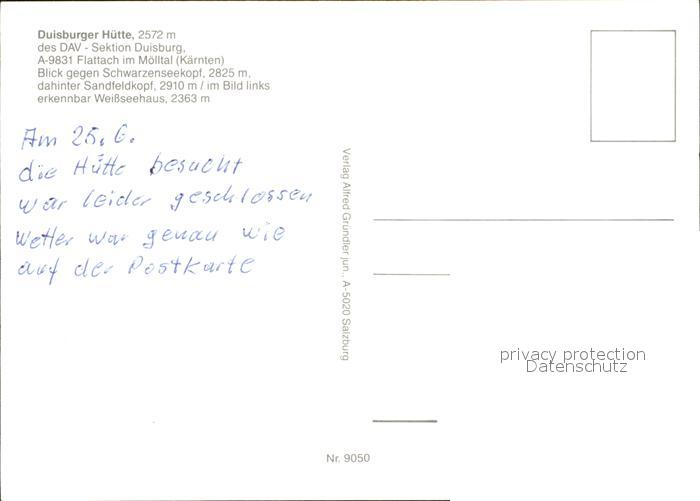 Duisburger Hütte, 2572 m
des DAV - Sektion Duisburg,
A-9831 Flattach im Mölltal (Kärnten)
Blick gegen Schwarzenseekopf, 2825 m,
dahinter Sandfeldkopf, 2910 m / im Bild links
erkennbar Weißseehaus, 2363 m
Am 25. 6.
die Hütte besucht
war leider geschlossen
Wetter war genau wie
auf der Postkarte
Verlag Alfred Gründler jun., A-5020 Salzburg
privacy protection
Datenschutz
Nr. 9050